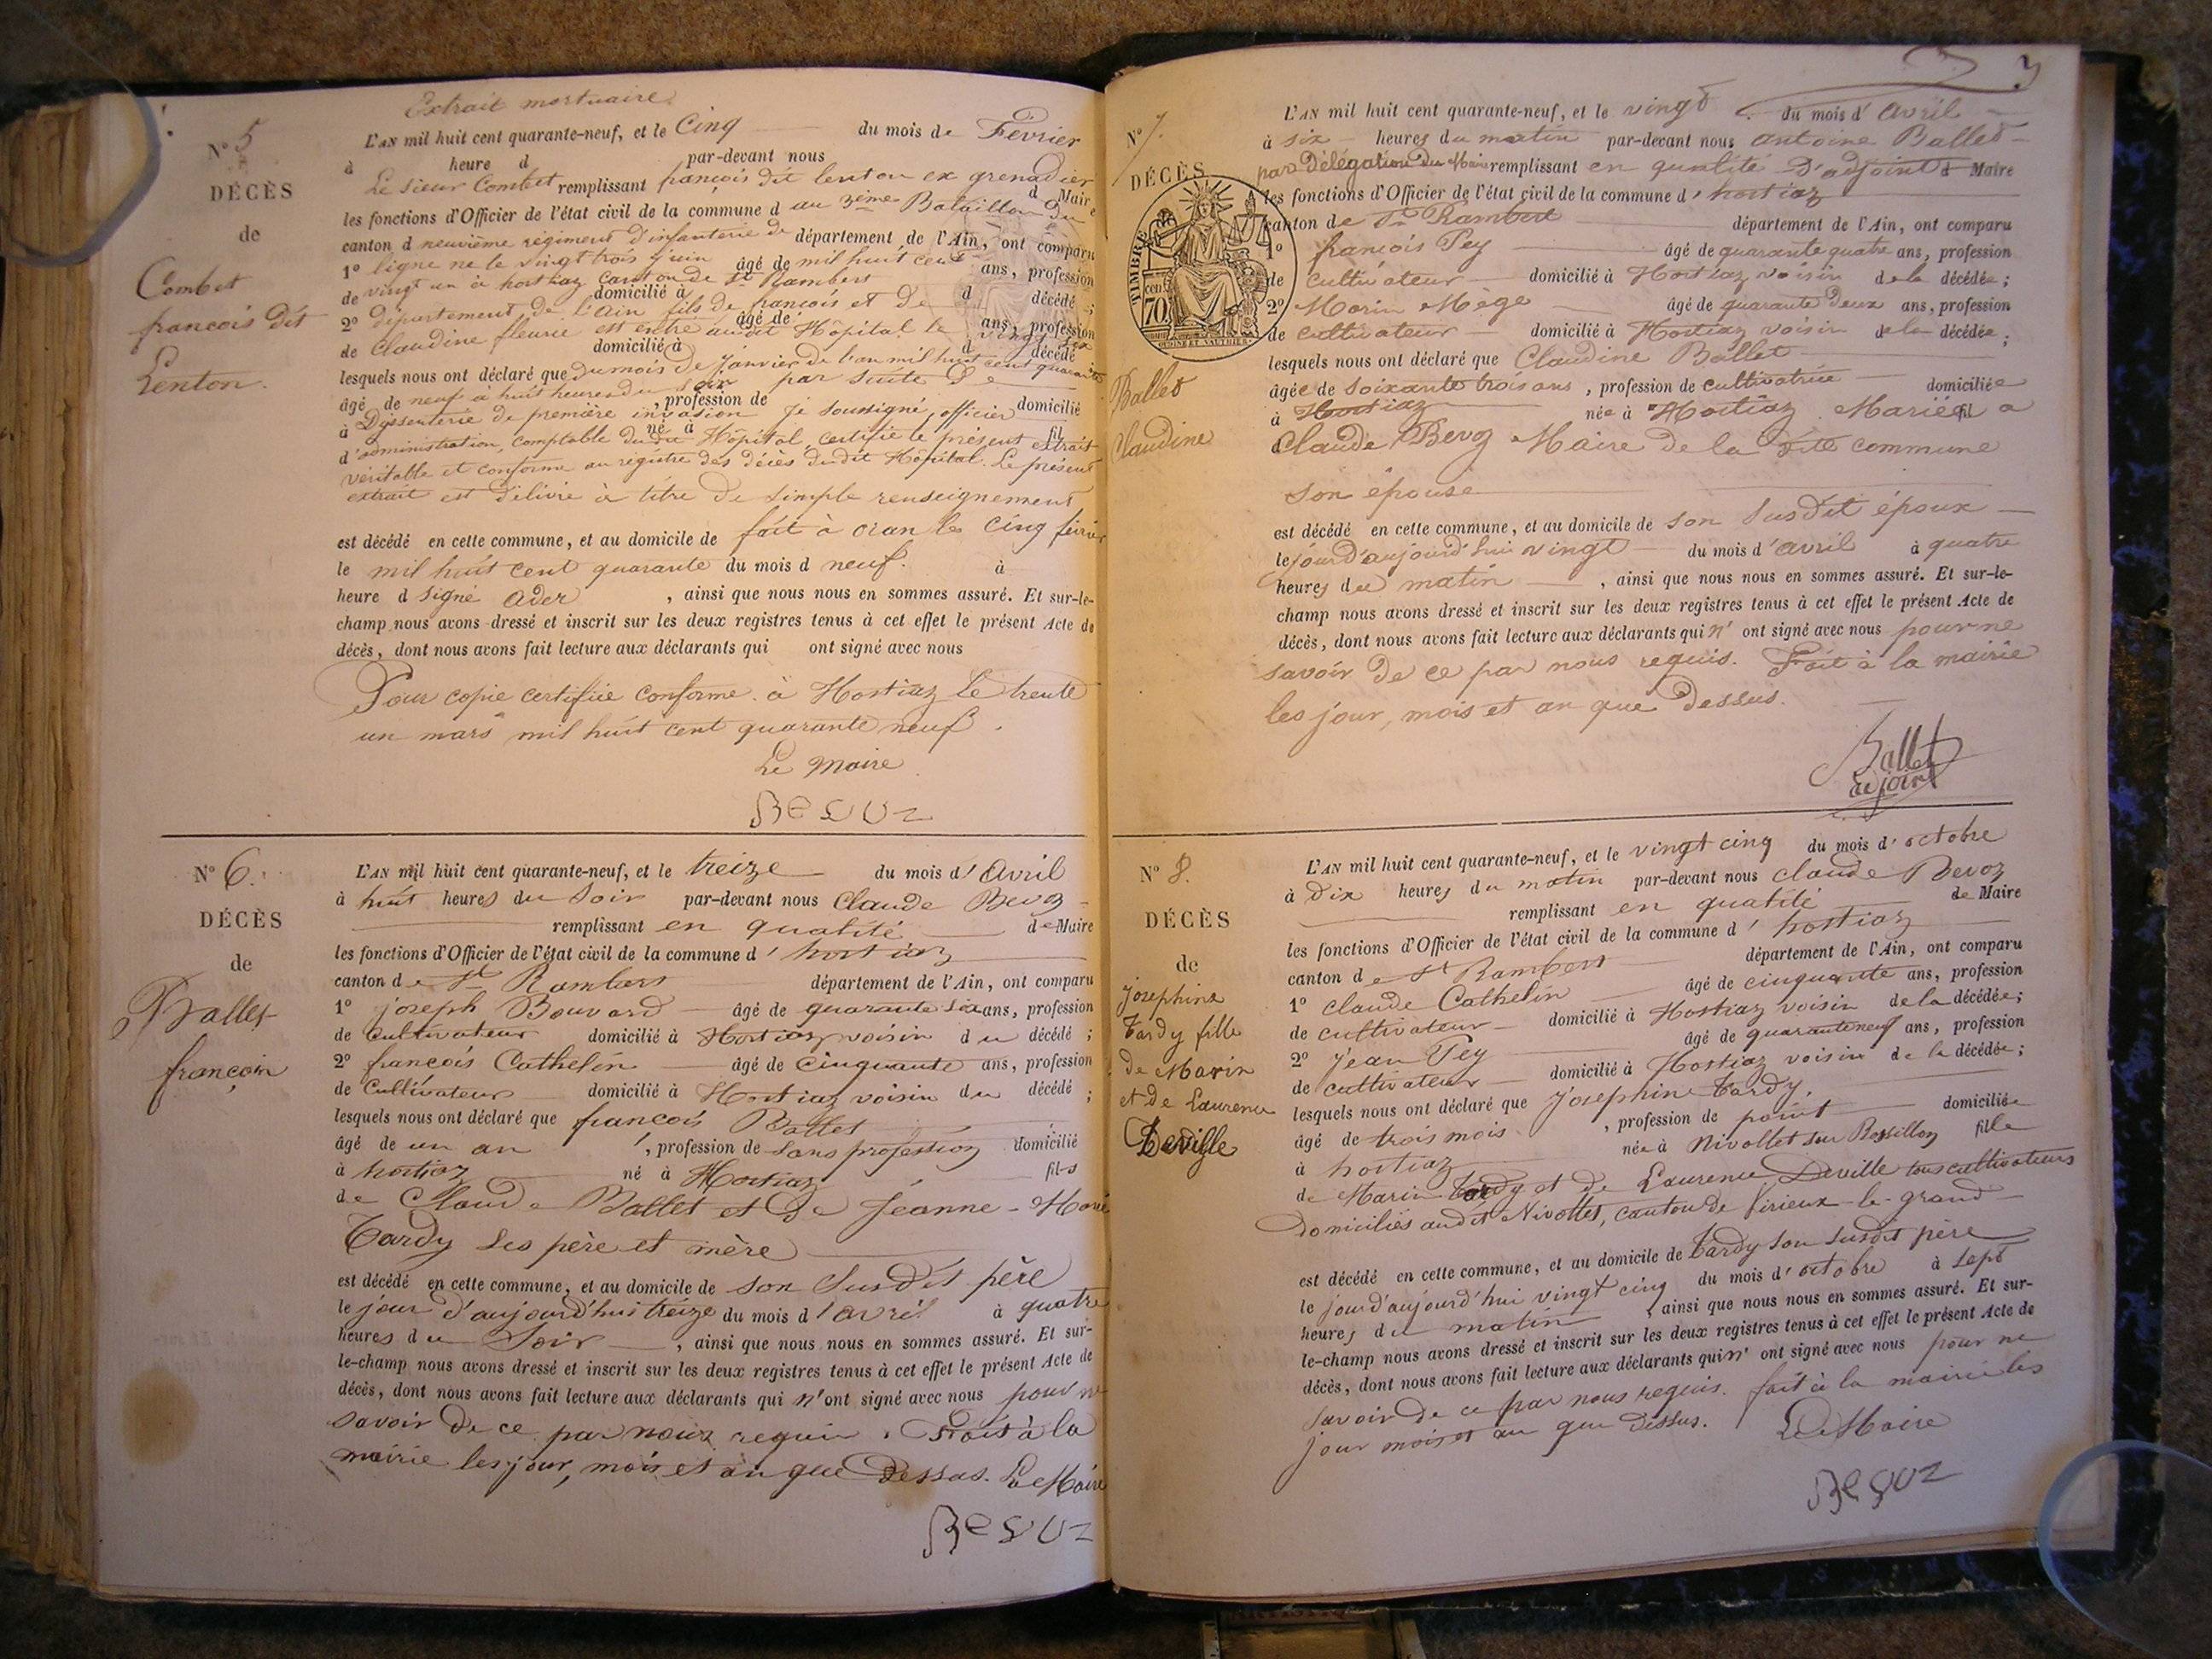 Extrait mortuaire
N° 5
DÉCÈS
de
Combet
francois dit
Lenton.
L'AN mil huit cent quarante-neuf, et le Cinq du mois de Février
à heure d par-devant nous
Le Sieur Combet remplissant françois dit lenton ex grenadier d Maire
les fonctions d'Officier de l'état civil de la commune d au 3eme Bataillon du
canton d neuvième régiment d'infanterie de département de l'Ain, ont comparu
1° ligne né le vingt trois juin âgé de mil huit cent ans, profession
de vingt un à hostiaz canton de St Rambert domicilié à d décédé ;
2° département de l'ain fils de francois et de âgé de ans, profession
de Claudine fleurie est entré audit Hôpital le vingt six domicilié à d décédé
lesquels nous ont déclaré que du mois de Janvier de l'an mil huit cent quarante
âgé de neuf a huit heures du soir par suite De , profession de domicilié
à Dyssenterie de première invasion Je soussigné, officier né à fil
d'administration, comptable dudit Hôpital, certifie le présent extrait
véritable et conforme au régistre des décès dudit Hôpital. Le présent
extrait est délivré à titre de simple renseignement
est décédé en cette commune, et au domicile de fait à oran le cinq février
le mil huit cent quarante du mois d neuf. à
heure d signé Ader , ainsi que nous nous en sommes assuré. Et sur-le-
champ nous avons dressé et inscrit sur les deux registres tenus à cet effet le présent Acte de
décès, dont nous avons fait lecture aux déclarants qui ont signé avec nous
Pour copie certifiée conforme à Hostiaz Le trente
un mars mil huit cent quarante neuf.
Le Maire
Bevoz
N° 6.
DÉCÈS
de
Ballet
françois
L'AN mil huit cent quarante-neuf, et le treize du mois d'Avril
à huit heures du Soir par-devant nous Claude Bevoz
remplissant en qualité de Maire
les fonctions d'Officier de l'état civil de la commune d'hostiaz
canton de St Rambert département de l'Ain, ont comparu
1° joseph Bouvard âgé de quarante six ans, profession
de Cultivateur domicilié à Hostiaz voisin du décédé ;
2° francois Cathelin âgé de Cinquante ans, profession
de Cultivateur domicilié à Hostiaz voisin du décédé ;
lesquels nous ont déclaré que francois Ballet
âgé de un an , profession de Sans profession domicilié
à hostiaz né à Hostiaz fils
de Claude Ballet et de Jeanne-Marie
Tardy Ses père et mère
est décédé en cette commune, et au domicile de son Susdit père
le jour d'aujourd'hui treize du mois d'avril à quatre
heures du Soir , ainsi que nous nous en sommes assuré. Et sur-
le-champ nous avons dressé et inscrit sur les deux registres tenus à cet effet le présent Acte de
décès, dont nous avons fait lecture aux déclarants qui n'ont signé avec nous pour ne
savoir de ce par nous requis. Fait à la
mairie les jour, mois et an que Dessus. Le Maire
Bevoz
3
N° 7.
DÉCÈS
TIMBRE
cen.
70
Ballet
Claudine
L'AN mil huit cent quarante-neuf, et le vingt du mois d'Avril
à six heures du matin par-devant nous antoine Ballet
par Délégation du Maire remplissant en qualité D'adjoint d Maire
les fonctions d'Officier de l'état civil de la commune d'hostiaz
canton de St Rambert département de l'Ain, ont comparu
1° francois Pey âgé de quarante quatre ans, profession
de cultivateur domicilié à Hostiaz voisin de la décédée ;
2° Marin Mège âgé de quarante Deux ans, profession
de cultivateur domicilié à Hostiaz voisin de la décédée ;
lesquels nous ont déclaré que Claudine Ballet
âgée de soixante trois ans , profession de cultivatrice domiciliée
à Hostiaz née à Hostiaz Mariée fil a
Claude Bevoz Maire de la dite commune
son épouse
est décédé en cette commune, et au domicile de son Susdit époux
le jour d'aujourd'hui vingt du mois d'avril à quatre
heures du matin , ainsi que nous nous en sommes assuré. Et sur-le-
champ nous avons dressé et inscrit sur les deux registres tenus à cet effet le présent Acte de
décès, dont nous avons fait lecture aux déclarants qui n'ont signé avec nous pour ne
savoir de ce par nous requis. Fait à la mairie
les jour, mois et an que dessus.
Ballet
adjoint
N° 8.
DÉCÈS
de
Josephine
Tardy fille
de Marin
et de Laurence
Deville
L'AN mil huit cent quarante-neuf, et le vingt cinq du mois d'octobre
à Dix heures du matin par-devant nous claude Bevoz
remplissant en qualité de Maire
les fonctions d'Officier de l'état civil de la commune d'hostiaz
canton de St Rambert département de l'Ain, ont comparu
1° claude Cathelin âgé de cinquante ans, profession
de cultivateur domicilié à Hostiaz voisin de la décédée ;
2° Jean Pey âgé de quarante neuf ans, profession
de cultivateur domicilié à Hostiaz voisin de la décédée ;
lesquels nous ont déclaré que Josephine Tardy,
âgé de trois mois , profession de point domiciliée
à hostiaz née à Nivollet sur Rossillon fille
de Marin Tardy et de Laurence Deville tous cultivateurs
domiciliés audit Nivollet, canton de Virieux-le-grand
est décédé en cette commune, et au domicile de Tardy son susdit père
le jour d'aujourd'hui vingt cinq du mois d'octobre à sept
heures du matin , ainsi que nous nous en sommes assuré. Et sur-
le-champ nous avons dressé et inscrit sur les deux registres tenus à cet effet le présent Acte de
décès, dont nous avons fait lecture aux déclarants qui n'ont signé avec nous pour ne
savoir de ce par nous requis. fait à la mairie les
jour mois et an que dessus. Le Maire
Bevoz